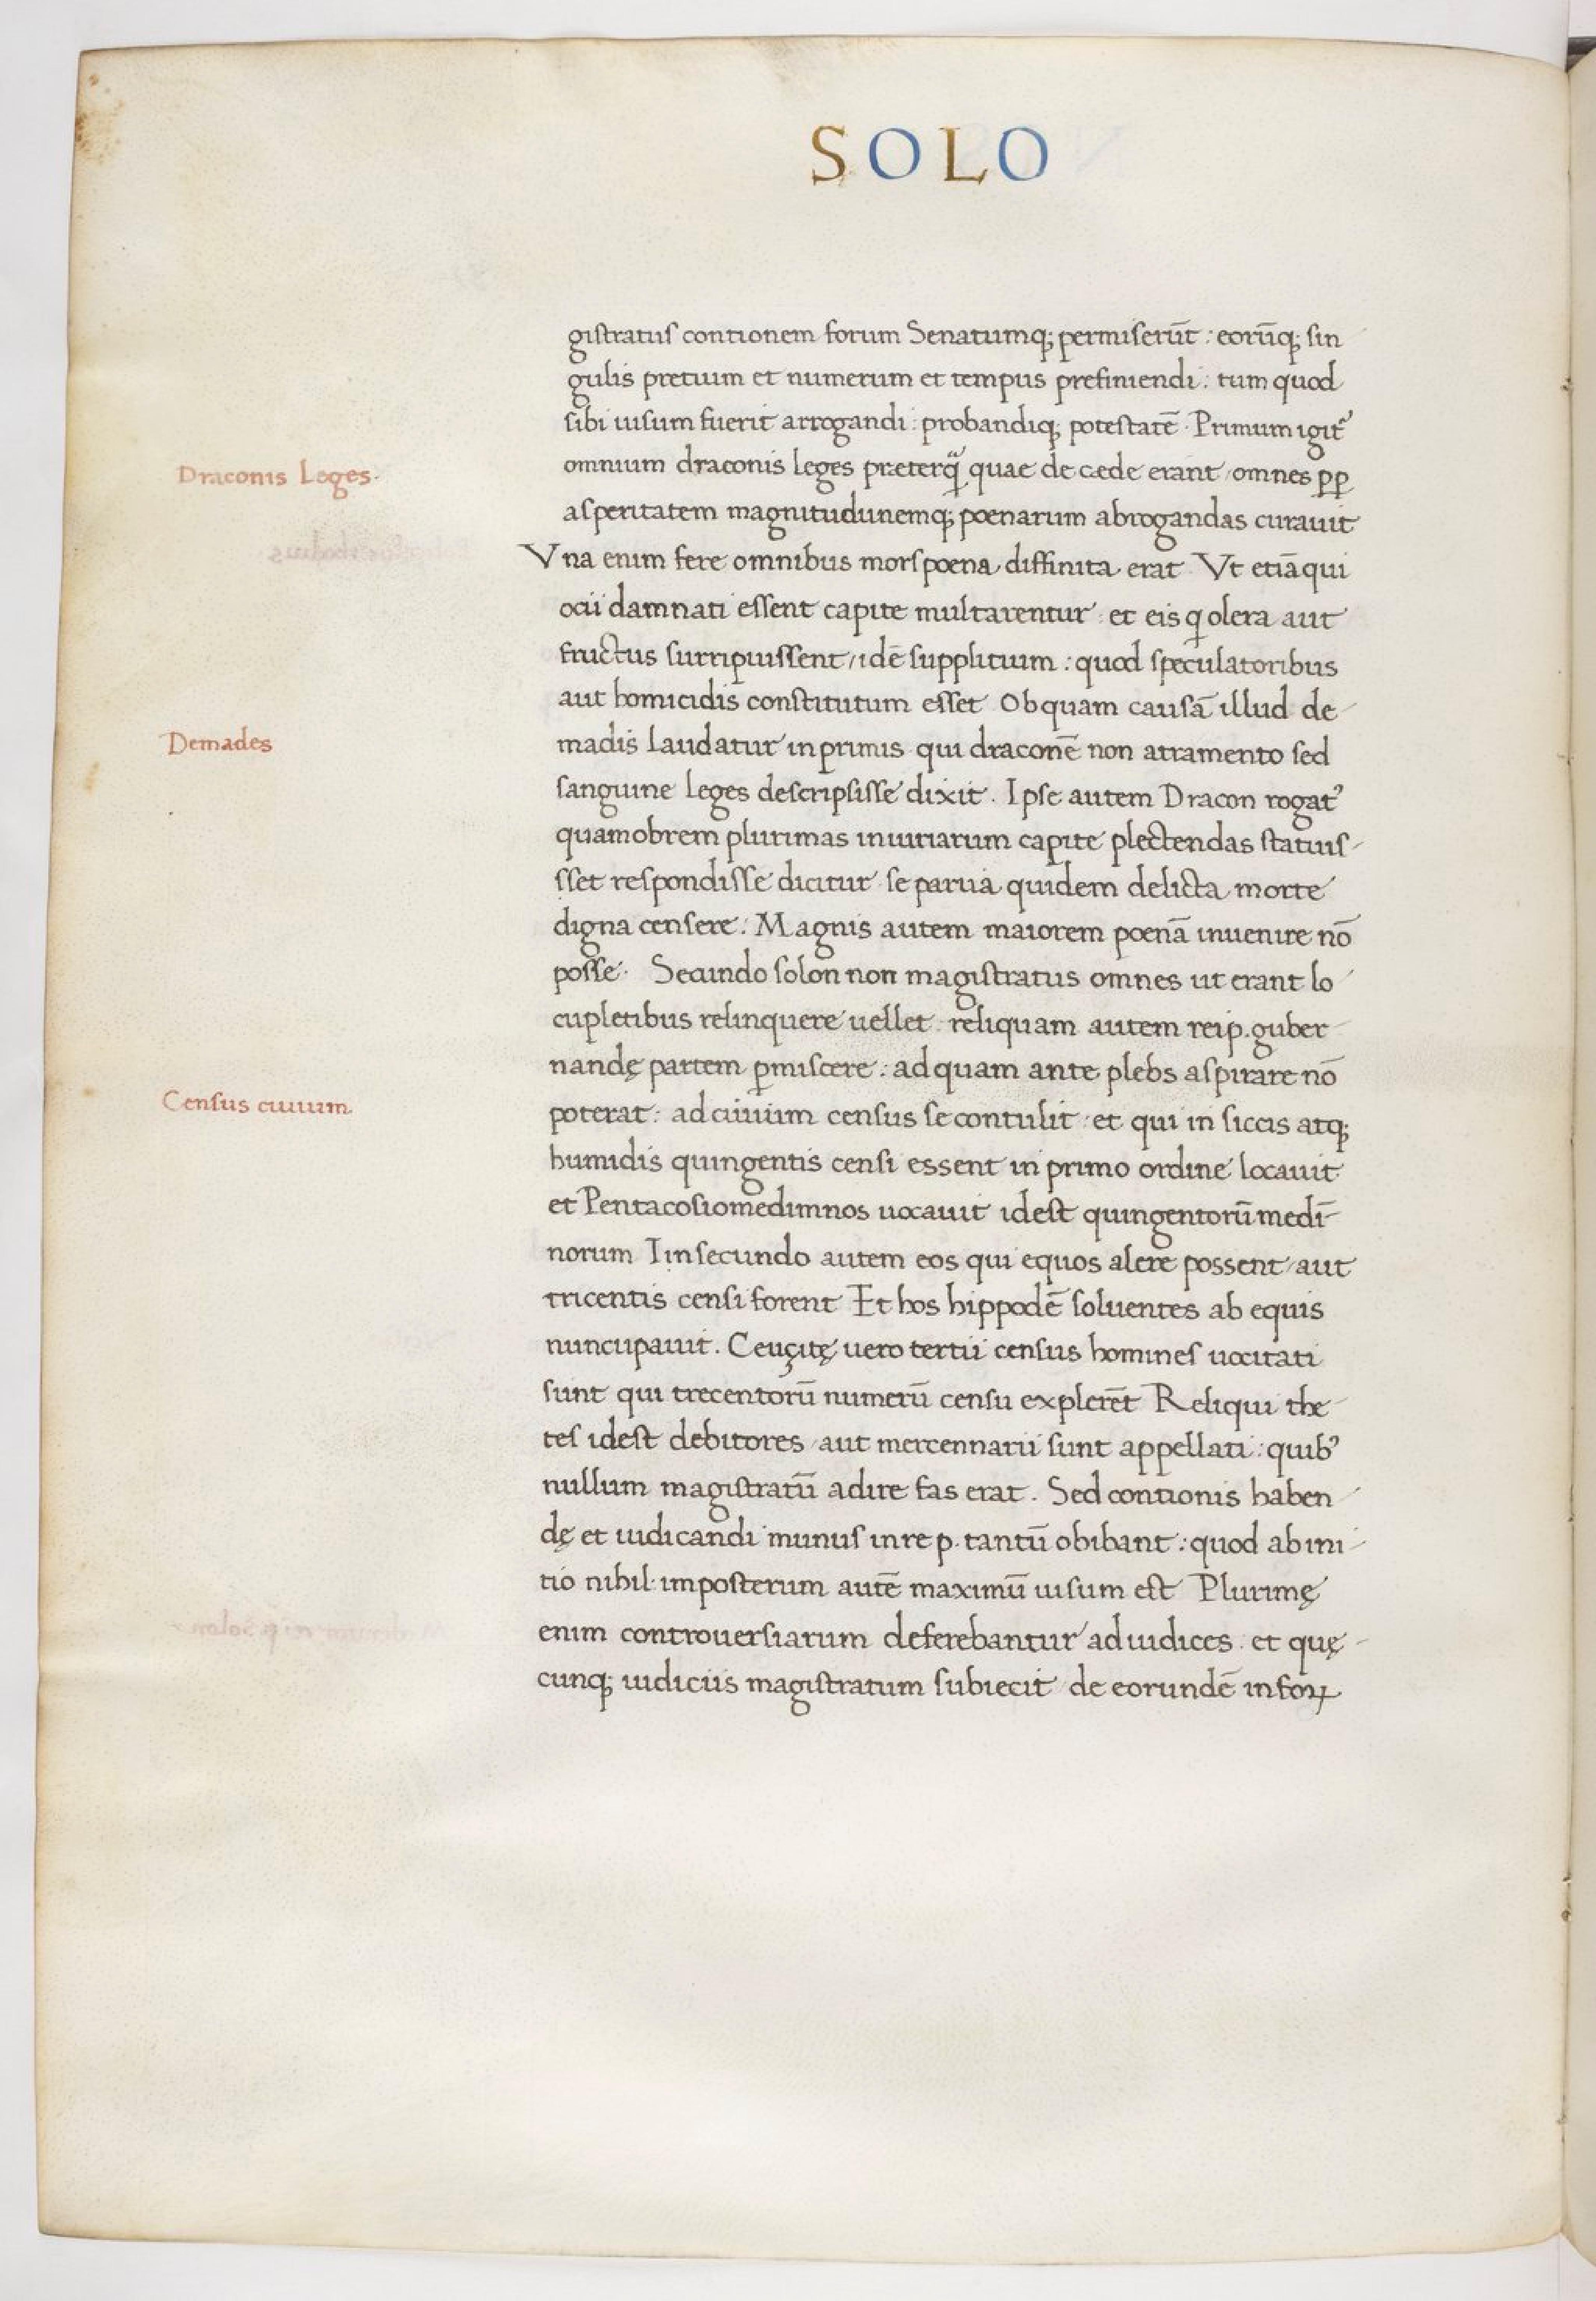 SOLO
giſtratuſ contionem forum Senatumq; permiſerūt : eorūq; ſin
gulis pretium et numerum et tempus prefiniendi : tum quod
ſibi uiſum fuerit arrogandi : probandiq; poteſtatē · Primum igit᷒
Draconis Leges·
omnium draconis leges præterꝙ̃ quae de cæde erant / omnes ꝑꝑ
aſperitatem magnitudunemq; poenarum abrogandas curauit
Vna enim fere omnibus morſ poena diffinita erat Vt etiā qui
ocii damnati eſſent capite multarentur : et eis q olera aut
fructus ſurripuiſſent / idē ſupplitium : quod ſpeculatoribus
aut homicidis conſtitutum eſſet Ob quam cauſā illud de
Demades
madis laudatur in primis qui draconē non atramento ſed
ſanguine leges deſcripſiſſe dixit . Ipſe autem Dracon rogat᷒
quamobrem plurimas iniuriarum capite plectendas ſtatuiſ-
ſſet reſpondiſſe dicitur ſe parua quidem delicta morte
digna cenſere : Magnis autem maiorem poenā inuenire nō
poſſe · Secundo ſolon non magiſtratus omnes ut erant lo
cupletibus relinquere uellet : reliquam autem reip. guber
nandę partem ꝑmiſcere : ad quam ante plebs aſpirare nō
Cenſus ciuium.
poterat : ad ciuium census ſe contulit : et qui in ſiccis atq;
humidis quingentis cenſi essent in primo ordine locauit
et Pentacoſiomedimnos uocauit idest quingentorū medī-
norum Iin ſecundo autem eos qui equos alere possent / aut
tricentis cenſi forent Et hos hippodē ſoluentes ab equis
nuncupauit . Ceuçitę uero tertii census homineſ uocitati
ſunt qui trecentorū numerū cenſu explerēt Reliqui the
teſ idest debitores / aut mercennarii ſunt appellati : quib᷒
nullum magiſtratū adire fas erat . Sed contionis haben
dę et iudicandi munuſ in re p. tantū obibant : quod ab ini
tio nihil · imposterum autē maximū uiſum est Plurimę
enim controuerſiarum deferebantur ad iudices : et quę
cunq; iudiciis magiſtratum ſubiecit / de eorundē in foꝝ